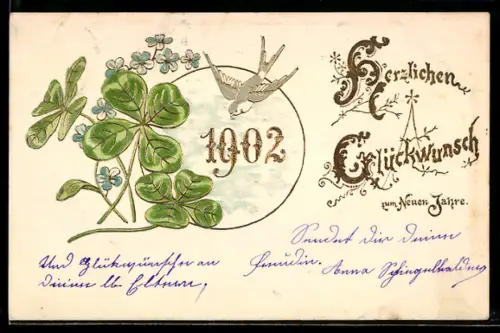 1902
Herzlichen
Glückwunsch
zum Neuen Jahre.
Sendet dir deine
Freundin.
Anna
Und Glükwünsche an
deine lb. Eltern.